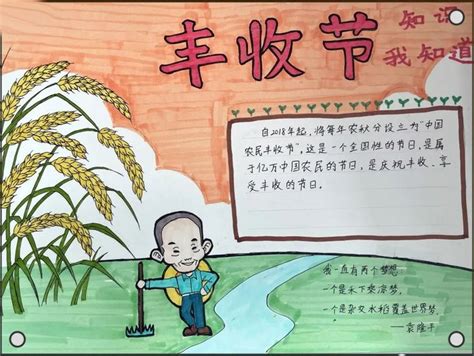 丰收节
知识
我知道
自2018年起，将每年农秋分设立为“中国
农民丰收节”，这是一个全国性的节日，是属
于亿万中国农民的节日，是庆祝丰收、享
受丰收的节日。
我一直有两个梦想
一个是禾下乘凉梦，
一个是杂交水稻覆盖世界梦。
——袁隆平